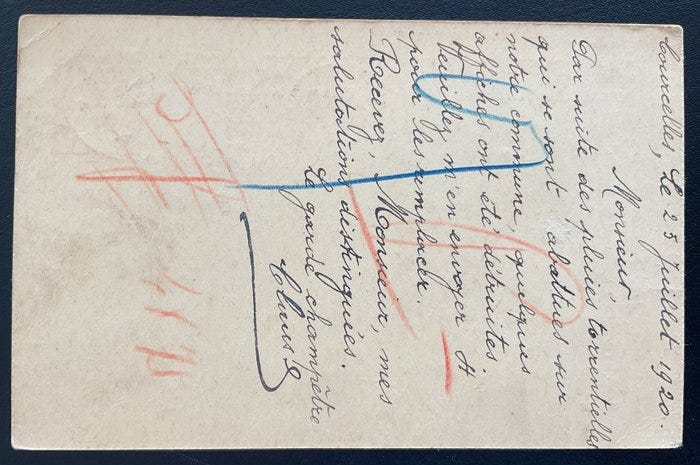 Courcelles, Le 23 Juillet 1920.
Monsieur,
Par suite des pluies torrentielles
qui se sont abattues sur
notre commune, quelques
affiches ont été détruites.
Veuillez m'en envoyer 4
pour les remplacer.
Recevez, Monsieur, mes
salutations distinguées.
Le garde champêtre